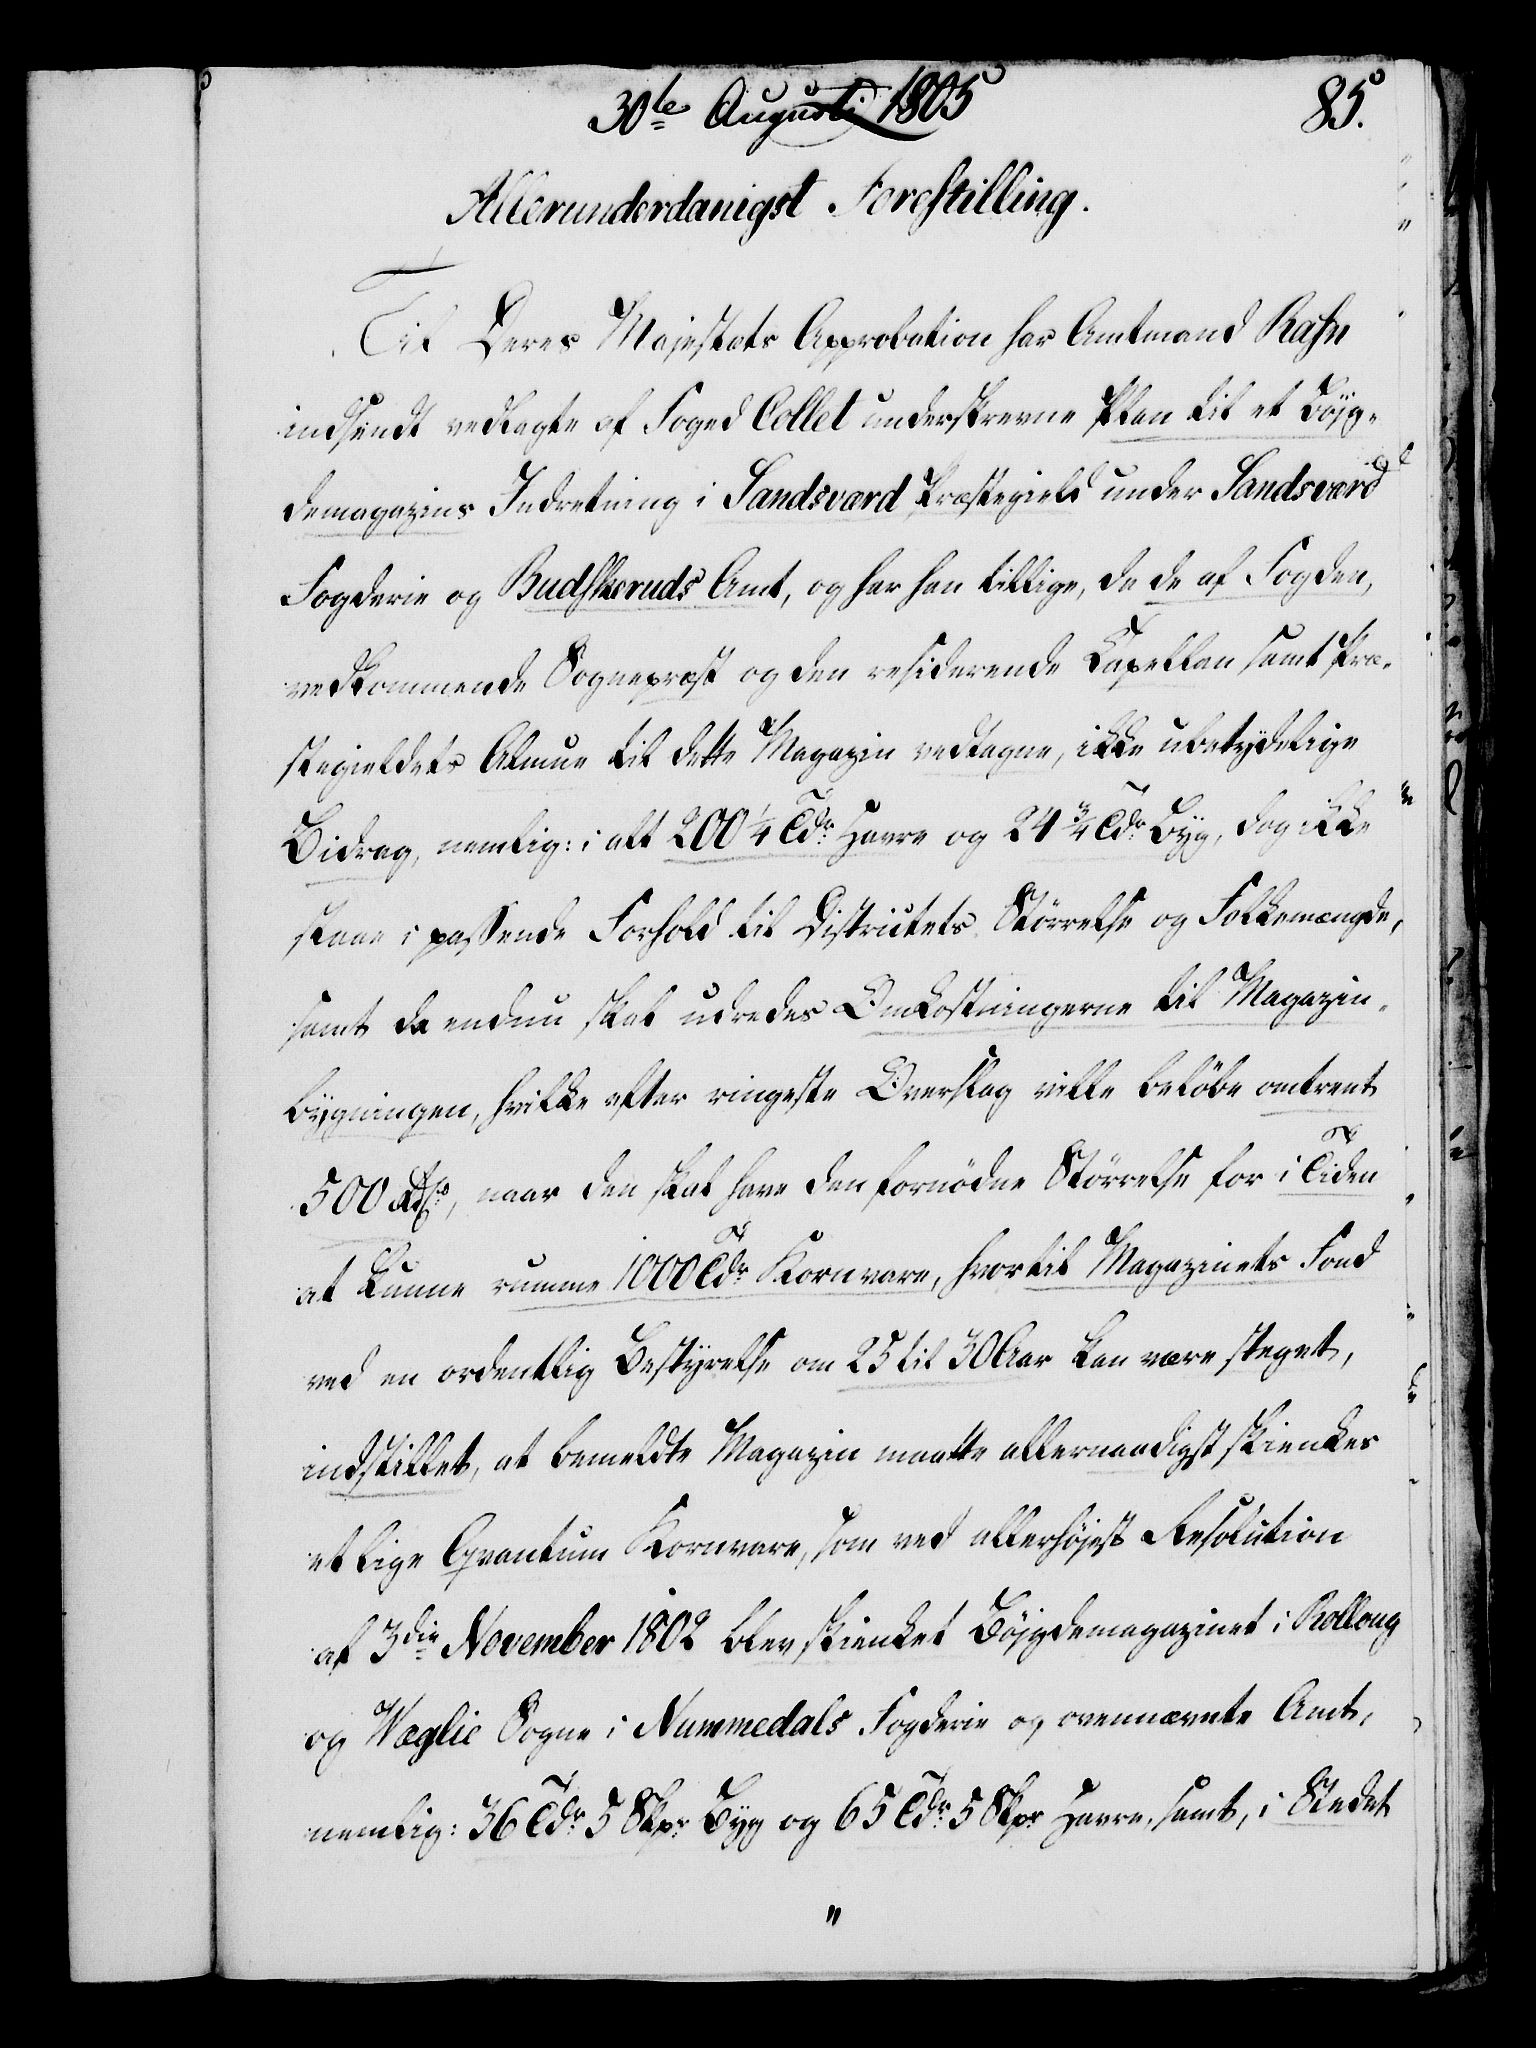 30te Augusti 1805
85.
Allerunderdanigst Forestilling.
Til Deres Majestæts Approbation har Amtmand Rafn
indsendt vedlagte af Foged Collet underskrevne Plan til et Bøjg-
demagazins Indretning i Sandsværd Præstegield under Sandsværd
Fogderie og Budskeruds Amt, og har han tillige, da de af Fogden,
vedkommende Sognepræst og den residerende Capellan samt Præ-
stegieldets Almue til dette Magazin vedtagne, ikke ubetydelige
Bidrag, nemlig: i alt 200 1/4 Tdr Havre og 24 3/4 Tdr Byg, dog ikke
staae i passende Forhold til Districtets Størrelse og Folkemængde,
samt da endnu skal udredes Omkostningerne til Magazin-
bygningen, hvilke efter ringeste Overslag ville beløbe omtrent
500 Rdlr, naar den skal have den fornødne Størrelse for i Tiden
at kunne rumme 1000 Tdr Kornvare, hvortil Magazinets Fond
ved en ordentlig Bestyrelse om 25 til 30 Aar kan være steget,
indstillet, at bemeldte Magazin maatte allernaadigst skienkes
et lige Qvantum Kornvare, som ved allerhøjest Resolution
af 3die November 1802 blev skienket Bøjgdemagazinet i Rolloug
og Wæglie Sogne i Nummedals Fogderie og ovennævnte Amt,
nemlig: 36 Tdr 5 Skpr Byg og 65 Tdr 5 Skpr Havre, samt, i Stedet
"